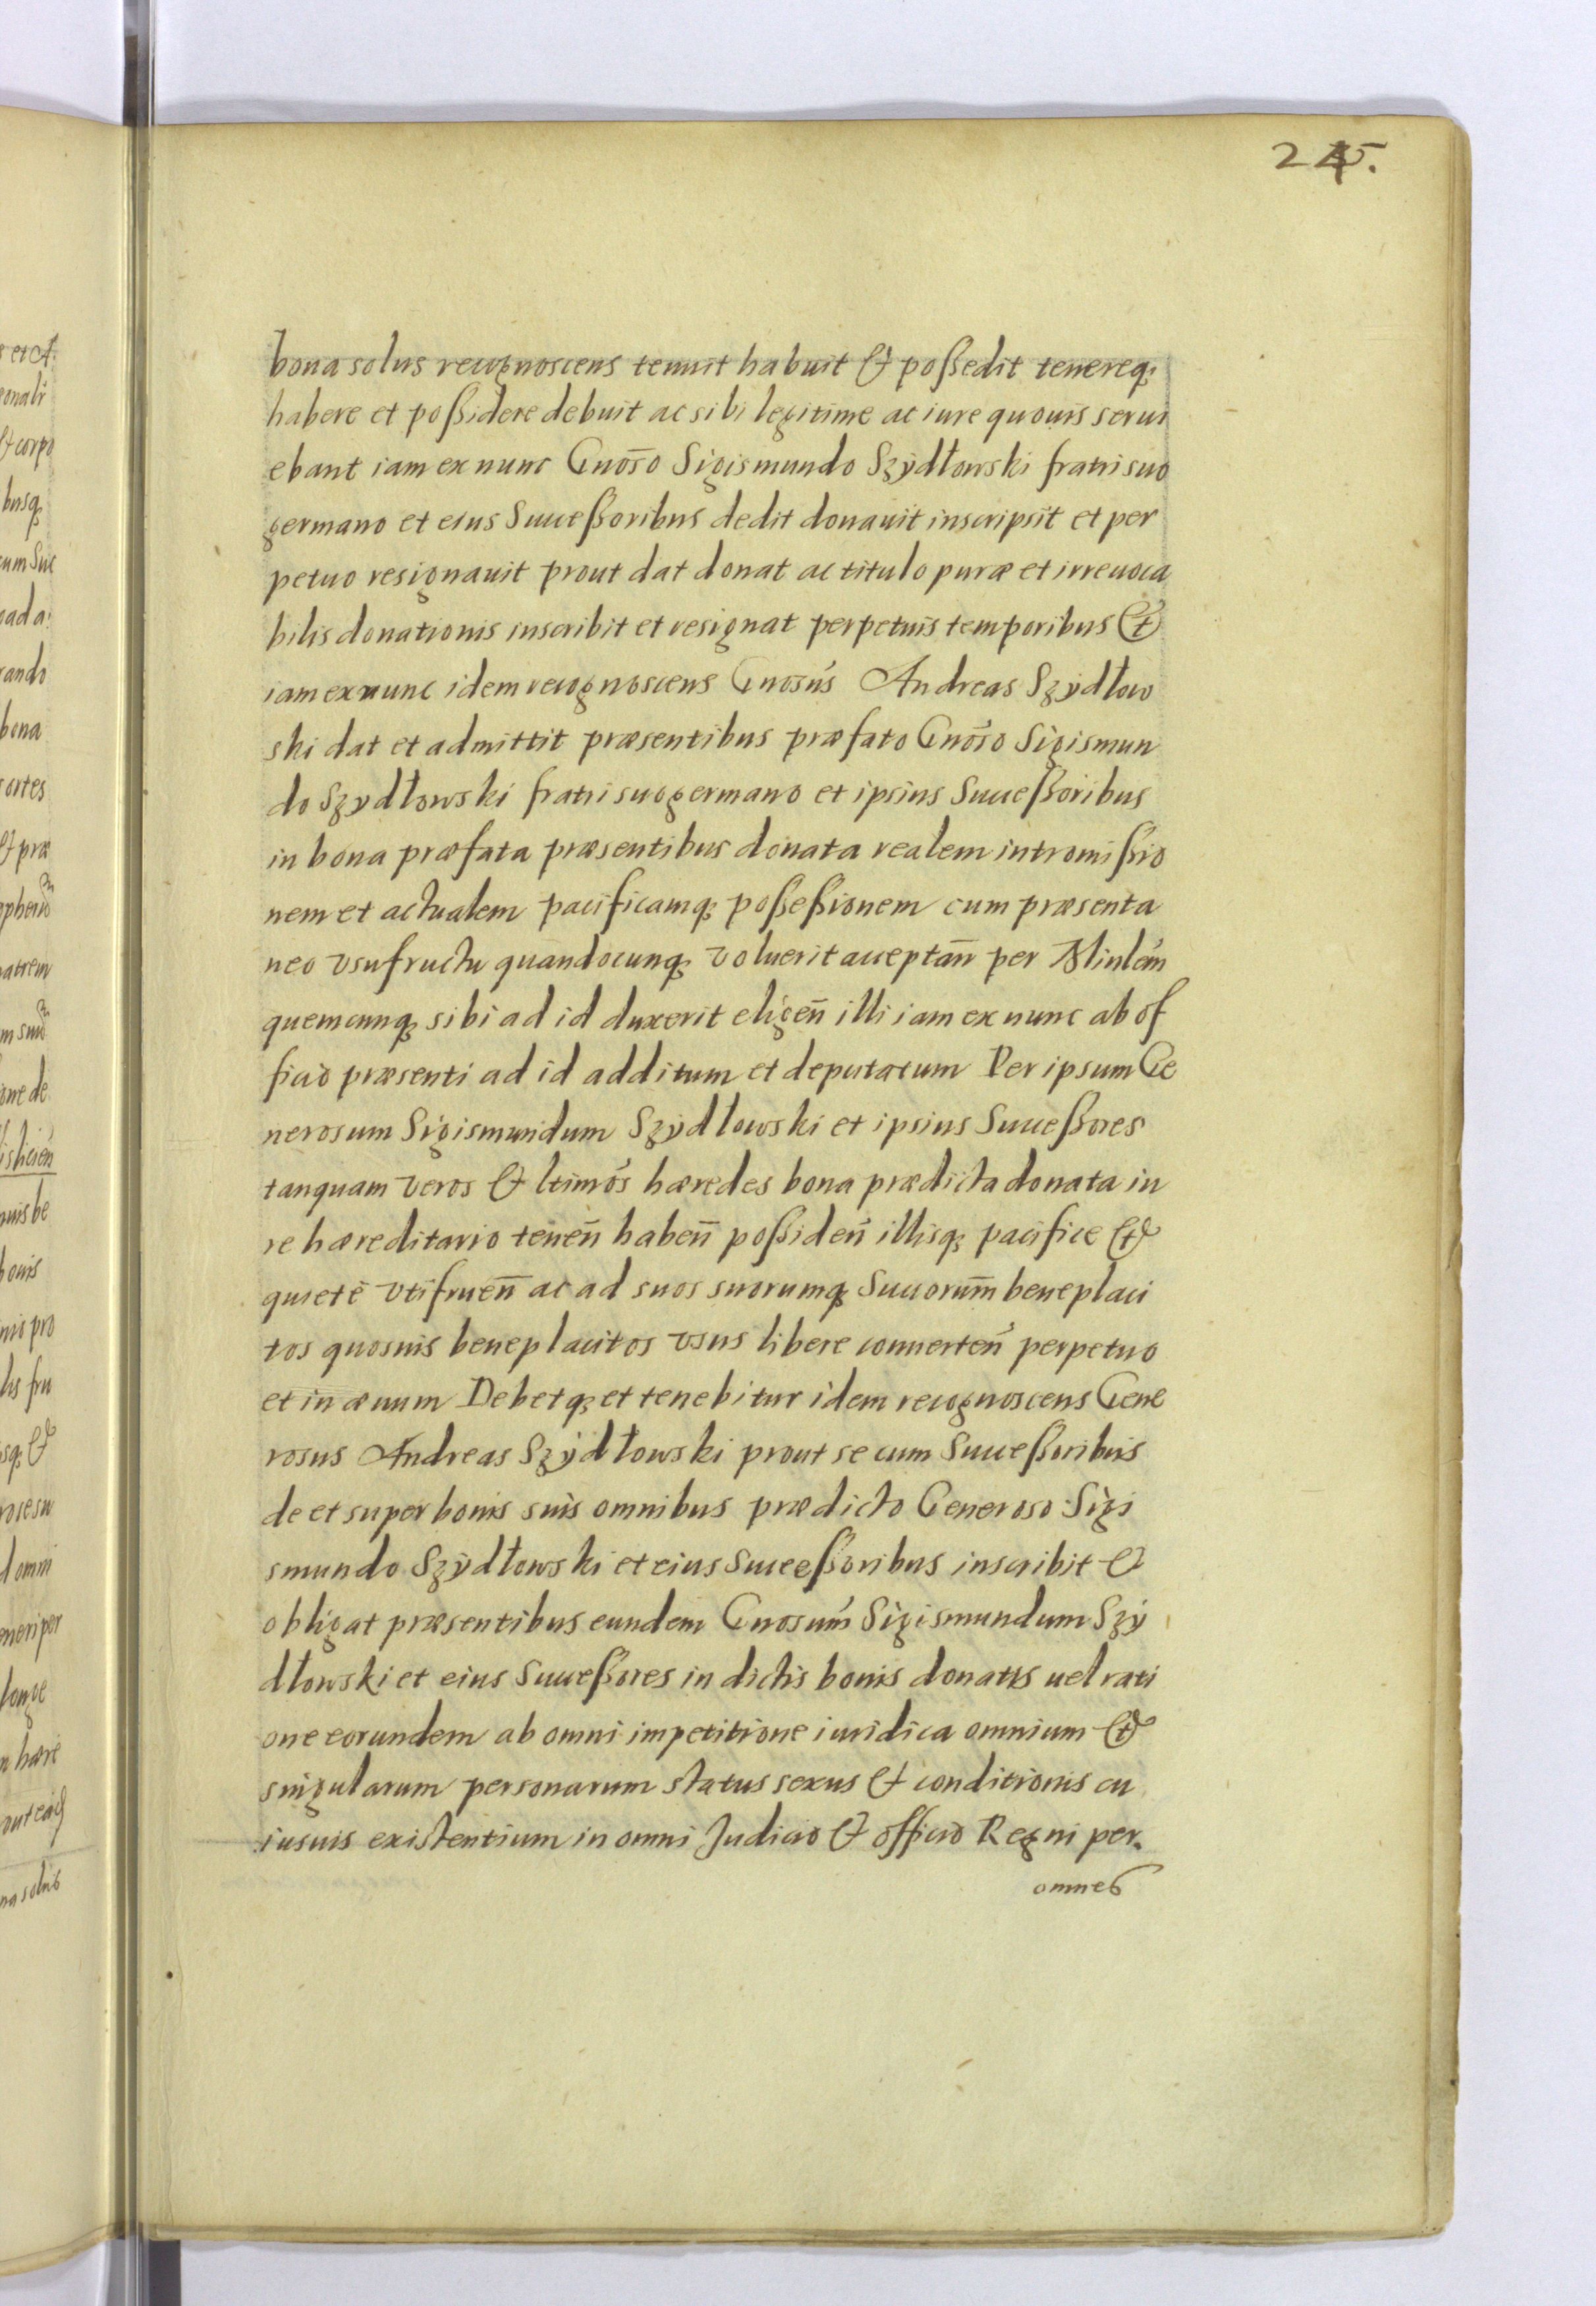 245.
bona solus recognoscens tenuit habuit & possedit tenereq;
habere et possidere debuit ac sibi legitime ac iure quouis serui
ebant iam ex nunc Gnōso Sigismundo Szÿdłowski fratri suo
germano et eius Successoribus dedit donauit inscripsit et per
petuo resignauit prout dat donat ac titulo puræ et irreuoca
bilis donationis inscribit et resignat perpetuis temporibus &
iam ex nunc idem recognoscens Gnosús Andreas Szÿdłow
ski dat et admittit præsentibus præfato Gnōso Sigismun
do Szydłowski fratri suo germano et ipsius Successoribus
in bona præfata præsentibus donata realem intromissio
nem et actualem pacificamq; possessionem cum præsenta
neo vsufructu quandocunq; voluerit acceptan̄ per Minlem̄
quemcunq; sibi ad id duxerit eligen̄ illi iam ex nunc ab of
ficio præsenti ad id additum et deputatum Per ipsum Ge
nerosum Sigismundum Szÿdlowski et ipsius Successores
tanquam veros & ltimós hæredes bona prædicta donata iu
re hæreditario tenen̄ haben̄ possiden̄ illisq; pacifice &
quietè vtifruen̄ ac ad suos suorumq; Succorum̄ beneplaci
tos quosuis beneplacitos vsus libere conuerten̄ perpetuo
et in æuum Debetq; et tenebitur idem recognoscens Gene
rosus Andreas Szÿdłowski prout se cum Successoribus
de et super bonis suis omnibus prædicto Generoso Sigi
smundo Szÿdłowski et eius Successoribus inscribit &
obligat præsentibus eundem Gnosum̄ Sigismundum Szÿ
dłowski et eius Successores in dictis bonis donatis uel rati
one eorundem ab omni impetitione iuridica omnium &
singularum personarum status sexus & conditionis cu
iusuis existentium in omni Judicio & officio Regni per.
omnes